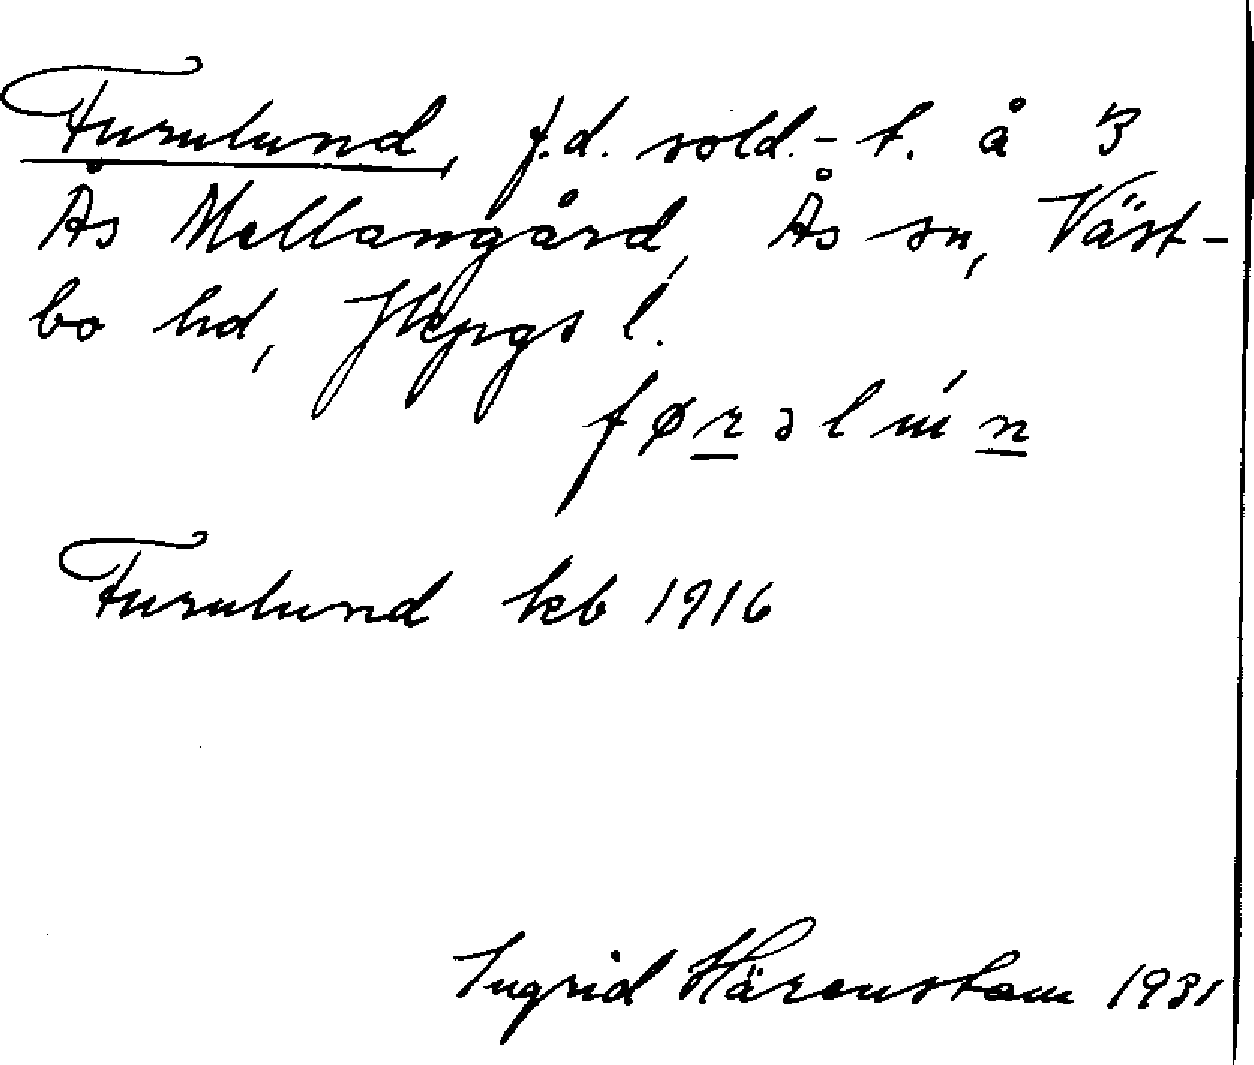 Furulund, f.d. sold.-t. å 3
Ås Mellangård, Ås sn, Väst-
bo hd, Jkpgs l.
førəlún
Furulund kb 1916
Ingrid Härenstam 1931